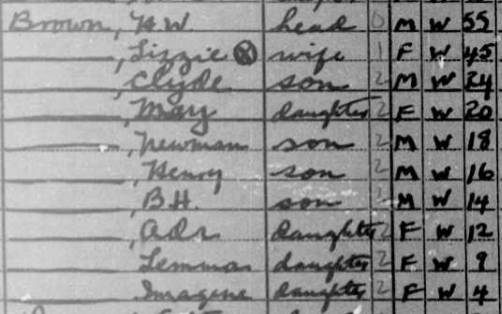 Brown, H W head 0 M W 55
, Lizzie ⓧ wife 1 F W 45
, Clyde son 2 M W 24
, Mary daughter 2 F W 20
, Newman son 2 M W 18
, Henry son 2 M W 16
, B.H. son M W 14
, Ada daughter 2 F W 12
, Lemma daughter 2 F W 9
, Imagene daughter 2 F W 4